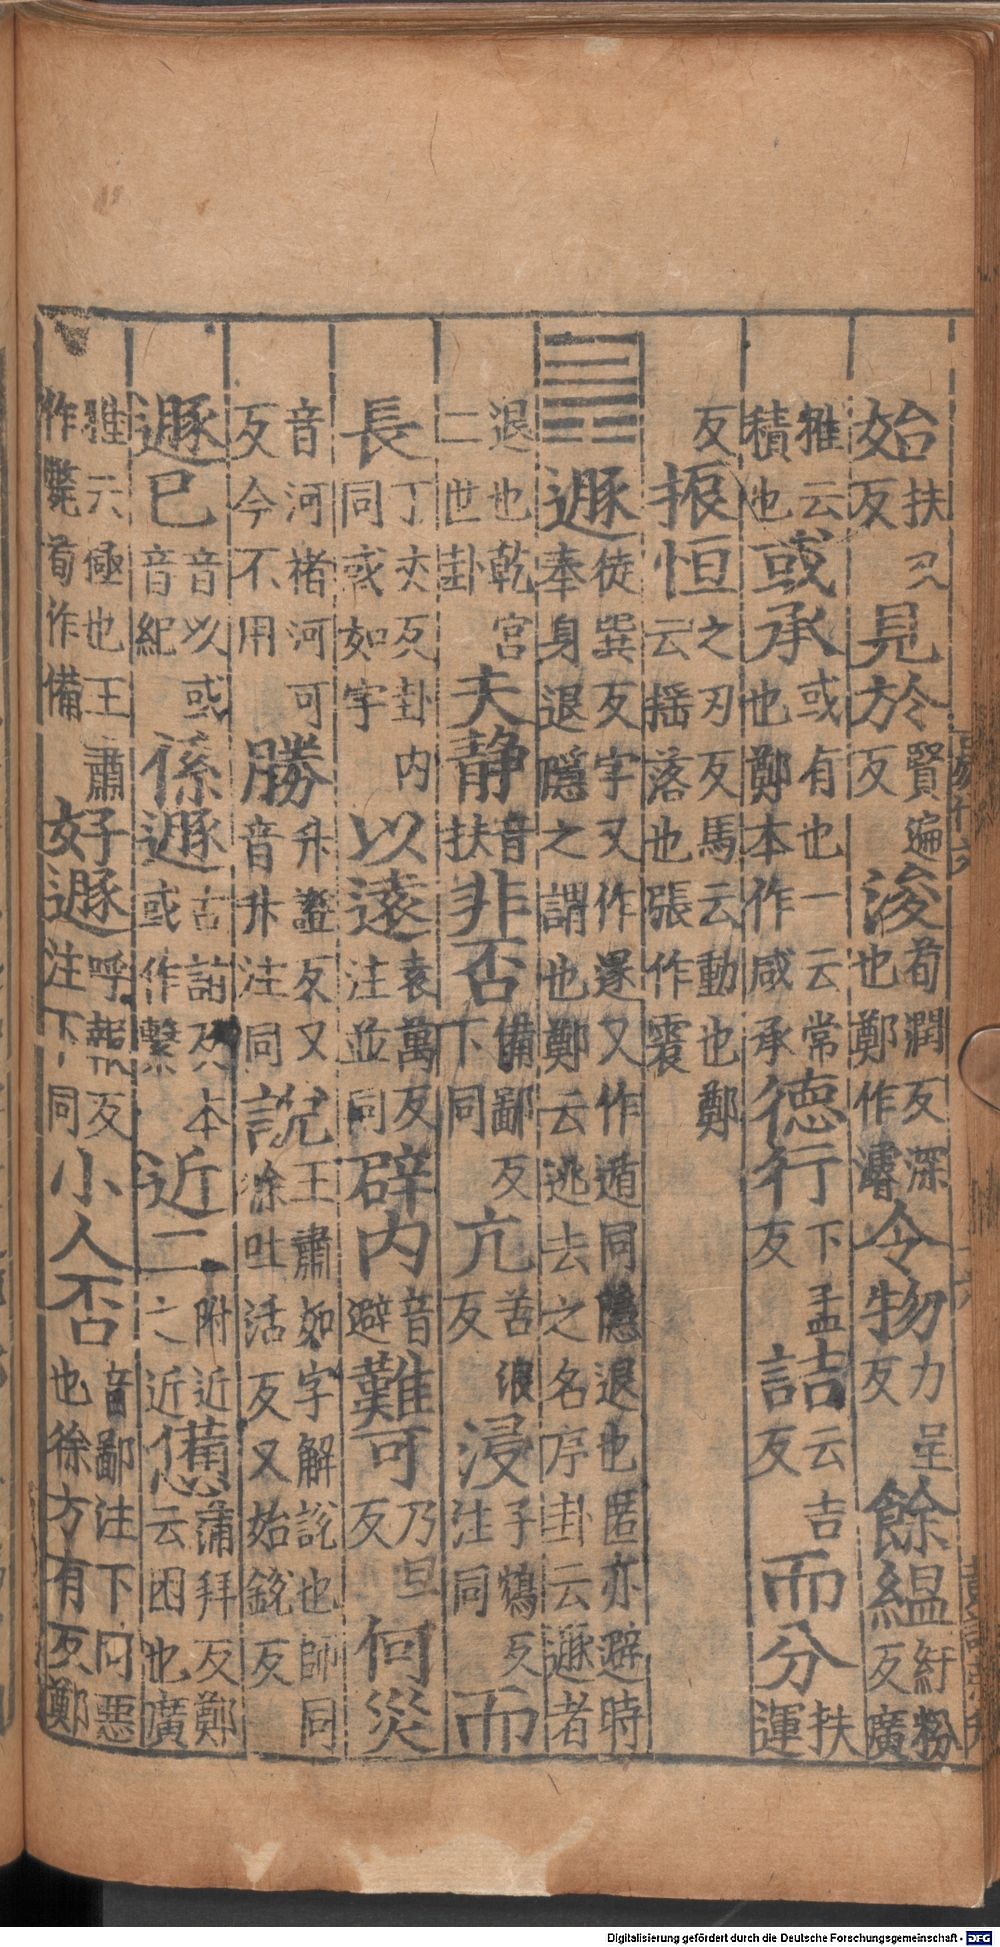 始扶又反見於賢遍反浚荀潤反深也鄭作濬令物力呈反餘緼紆粉反廣
雅云積也或承或有也一云常也鄭本作咸承德行下孟反詰去吉反而分扶運
反振恒之刃反馬云動也鄭云揺落也張作震
䷠遯徒巽反字又作遂又作遁同隱退也匿亦避時奉身退隱之謂也鄭云逃去之名序卦云遯者
退也乾宮二世卦夫静音扶非否備鄙反下同亢苦浪反浸子鴆反注同而
長丁丈反卦内同或如字以遠袁萬反注並同辟内音避難可乃旦反何災
音河禇河可反今不用勝升證反又音升注同說王肅如字解説也師同徐吐活反又始銳反
遯已音以或音紀係遯古詣反本或作繫近二附近之近憊蒲拜反鄭云困也廣
雅云極也王肅作斃荀作備好遯呼報反注下同小人否音鄙注下同惡也徐方有反鄭
Digitalisierung gefördert durch die Deutsche Forschungsgemeinschaft - DFG